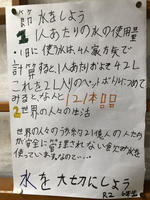 節水をしよう
1人あたりの水の使用量
・1日に使う水は、4人家族で
計算すると1人あたりおよそ42L
これを2L入りのペットボトルにつめて
みると、なんと121本!!
2世界の人々の生活
世界の人々のうち約21億人の人たち
が安全に管理されない飲み水を
使っています。なので…
水を大切にしよう
R2 6年生